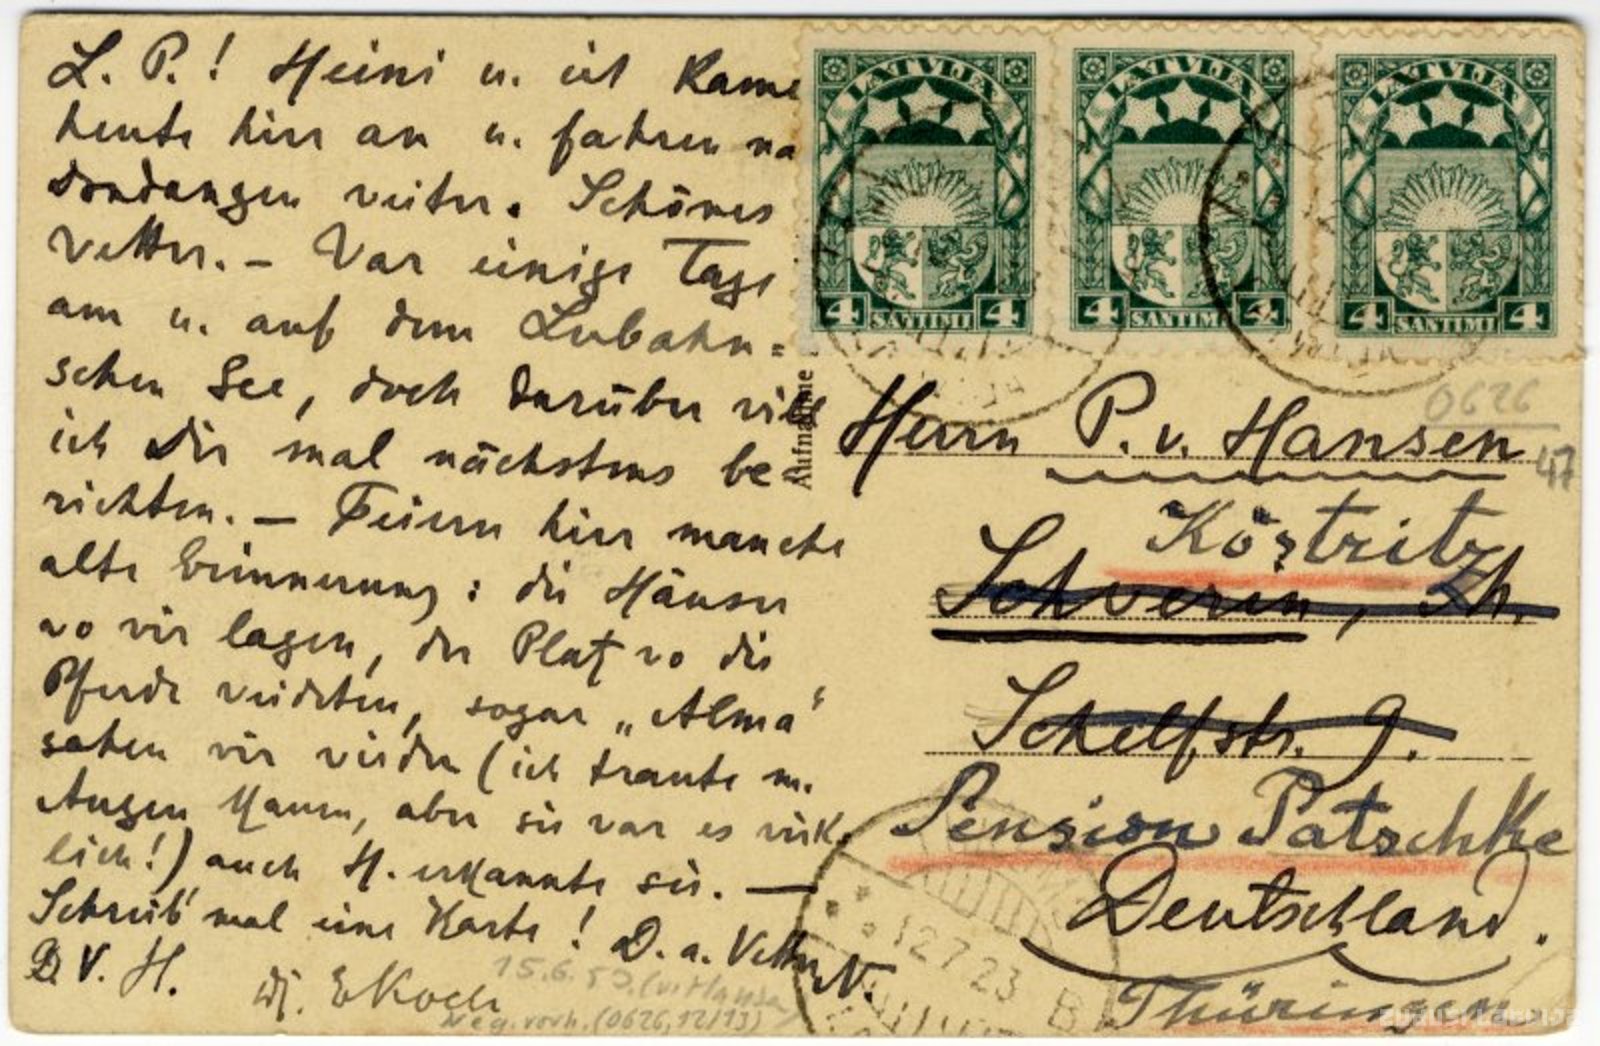 L. P.! Heini u. ich kame
heute hier an u. fahren na
Dondangen weiter. Schönes
Wetter. – War einige Tage
am u. auf dem Lubahn=
schen See, doch darüber will
ich Dir mal nächstens be-
richten. – Feiern hier manche
alte Erinnerung: die Häuser
wo wir lagen, der Platz wo die
Pferde weideten, sogar „Alma“
sahen wir wieder (ich traute m.
Augen kaum, aber sie war es wirk-
lich!) auch H. erkannte sie. —
Schreib' mal eine Karte! D. a. Vetter N.
v. H.
EKoch
15.6.
Neg. vorh. (0626, 12/13)
LATVIJA
4 SANTIMI 4
LATVIJA
4 SANTIMI 4
LATVIJA
4 SANTIMI 4
Aufnahme
0626
47
Herrn P. v. Hansen
Köstritz
Schwerin,
Schelfstr. 9.
Pension Patschke
Deutschland.
Thüringen
12 7 23
B